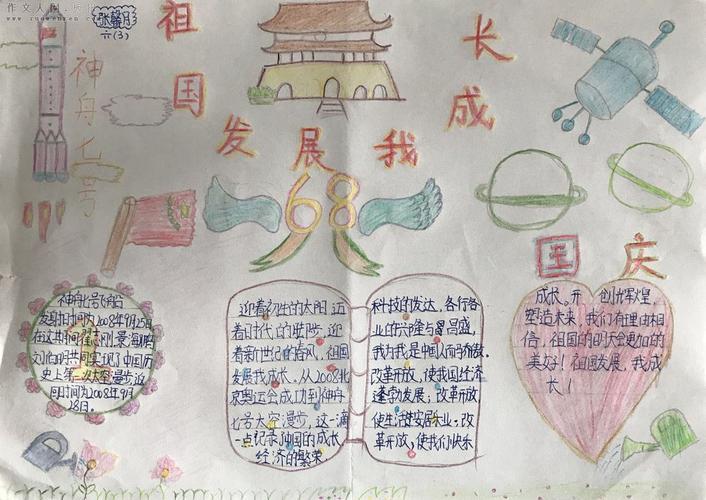 作文人网
www.zuowenren.com
张馨月
六(3)
祖国
发展我
成长
神舟七号
68
国庆
神舟七号飞船
发射时间为2008年9月25日
在这其间翟志刚、景海鹏
刘伯明共同实现了中国历
史上第一次太空漫步返
回时间为2008年9月
28日。
迎着初生的太阳、迈
着时代的步,迎
着新世纪的春风,祖国
发展我成长。从2008北
京奥运会成功到神舟
七号太空漫步,这一滴
一点记录祖国的成长
经济的繁荣
科技的发达,各行各
业的兴隆与昌盛,
我为我是中国人而骄傲。
改革开放,使我国经济
蓬勃发展;改革开放
使生活安居乐业,改
革开放,使我们快乐
成长。开创辉煌,
塑造未来,我们有理由相
信,祖国的明天会更加的
美好!祖国发展,我成
长!